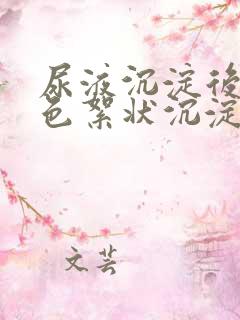 尿液沉淀後
色絮状沉淀
文芸